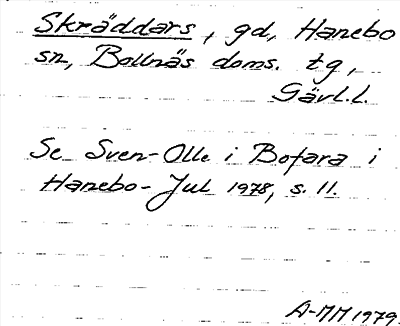 Skräddars, gd, Hanebo
sn, Bollnäs doms. tg,
Gävl.l.
Se Sven-Olle i Bofara i
Hanebo-Jul 1978, s. 11.
A-MM 1979.